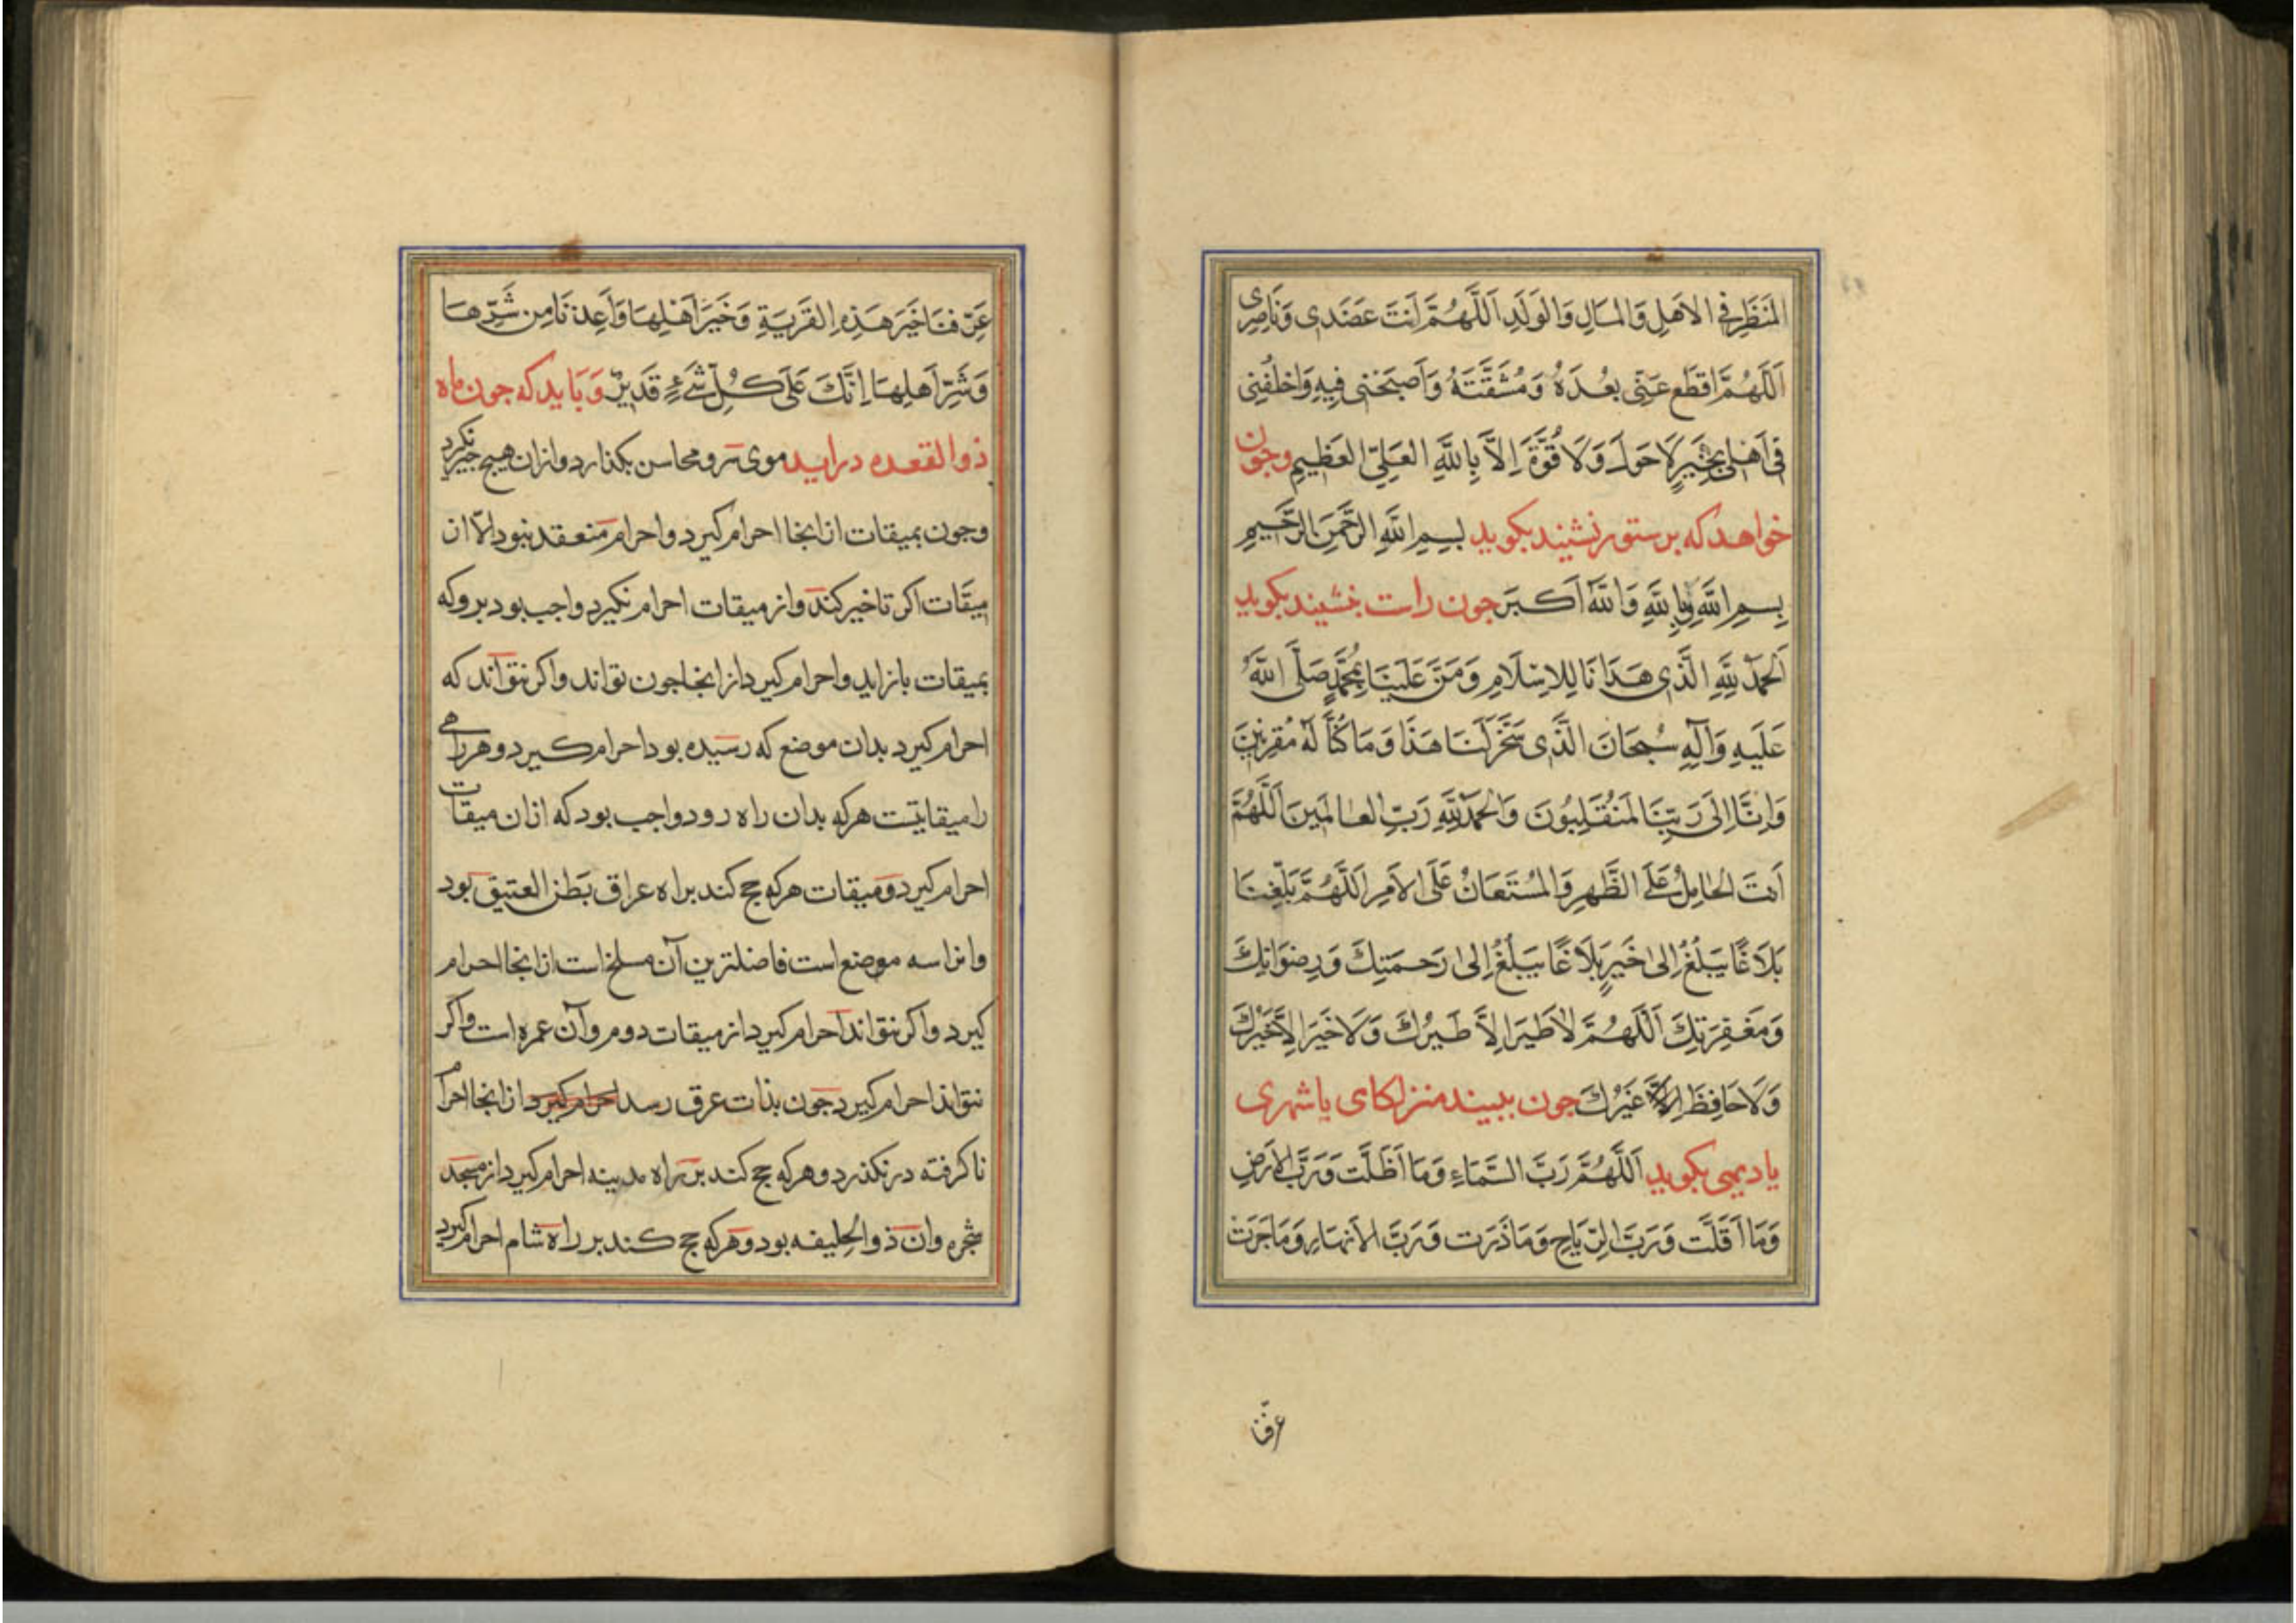 المَنظَرِ فِي الاَهلِ وَالمَالِ وَالوَلَدِ اَللَّهُمَّ اَنتَ عَضَدِی وَنَاصِرِی
اَللَّهُمَّ اقطَع عَنّی بُعدَهُ وَمُشَقَّتَهُ وَاَصحَبنی فِیهِ وَاخلُفنِی
فِی اَهلِی بِخَیرٍ لَا حَولَ وَلَا قُوَّةَ اِلَّا بِاللَّهِ العَلِیّ العَظِیمِ وجون
خواهد که بر ستور نشیند بکوید بِسمِ اللَّهِ الرَّحمَنِ الرَّحِیمِ
بِسمِ اللَّهِ وَبِاللَّهِ وَاللَّهُ اَکبَر جون راست بنشیند بکوید
اَلحَمدُ لِلَّهِ الَّذِی هَدَانَا لِلاِسلَامِ وَمَنَّ عَلَینَا بِمُحَمَّدٍ صَلَّی اللَّهُ
عَلَیهِ وَآلِهِ سُبحَانَ الَّذِی سَخَّرَ لَنَا هَذَا وَمَا کُنَّا لَهُ مُقرِنِینَ
وَاِنَّا اِلَی رَبِّنَا لَمُنقَلِبُونَ وَالحَمدُ لِلَّهِ رَبِّ العَالَمِینَ اَللَّهُمَّ
اَنتَ الحَامِلُ عَلَی الظَّهرِ وَالمُستَعَانُ عَلَی الاَمرِ اَللَّهُمَّ بَلِّغنَا
بَلَاغًا یَبلُغُ اِلی خَیرٍ بَلَاغًا یَبلُغُ اِلی رَحمَتِکَ وَرِضوَانِکَ
وَمَغفِرَتِکَ اَللَّهُمَّ لَا طَیرَ اِلَّا طَیرُکَ وَلَا خَیرَ اِلَّا خَیرُکَ
وَلَا حَافِظَ غَیرُکَ جون ببیند منزلکای یا شهری
یا دیهی بکوید اَللَّهُمَّ رَبَّ السَّمَاءِ وَمَا اَظَلَّت وَرَبَّ الاَرضِ
وَمَا اَقَلَّت وَرَبَّ الرِّیَاحِ وَمَا ذَرَت وَرَبَّ الاَنهَارِ وَمَا جَرَت
عرّفنا
عَرِّفنَا خَیرَ هَذِهِ القَریَةِ وَخَیرَ اَهلِهَا وَاَعِذنَا مِن شَرِّهَا
وَشَرِّ اَهلِهَا اِنَّکَ عَلَی کُلِّ شَیءٍ قَدِیرٌ وَبَاید که جون ماه
ذوالقعده دراید موی سر و محاسن بکذارد و ازان هیچ جیز نکیرد
وجون بمیقات از انجا احرام کیرد و احرام منعقد نبود الّا از
میقات اکر تاخیر کند و از میقات احرام نکیرد واجب بود برو که
بمیقات باز اید و احرام کیرد از انجا جون تواند و اکر نتواند که
احرام کیرد بدان موضع که رسیده بود احرام کیرد و هر راهی
را میقاتیست هر که بدان راه رود واجب بود که ازان میقات
احرام کیرد و میقات هر که حج کند براه عراق بَطن العتیق بود
و انرا سه موضع است فاضلترین آن مسلخ است از انجا احرام
کیرد و اکر نتواند احرام کیرد از میقات دوم و آن عمره است و اکر
نتواند احرام کیرد جون بذات عرق رسد احرام کیرد از انجا احرام
ناکرفته در نکذرد و هر که حج کند بر راه مدینه احرام کیرد از مسجد
شجره و ان ذوالحلیفه بود و هر که حج کند بر راه شام احرام کیرد